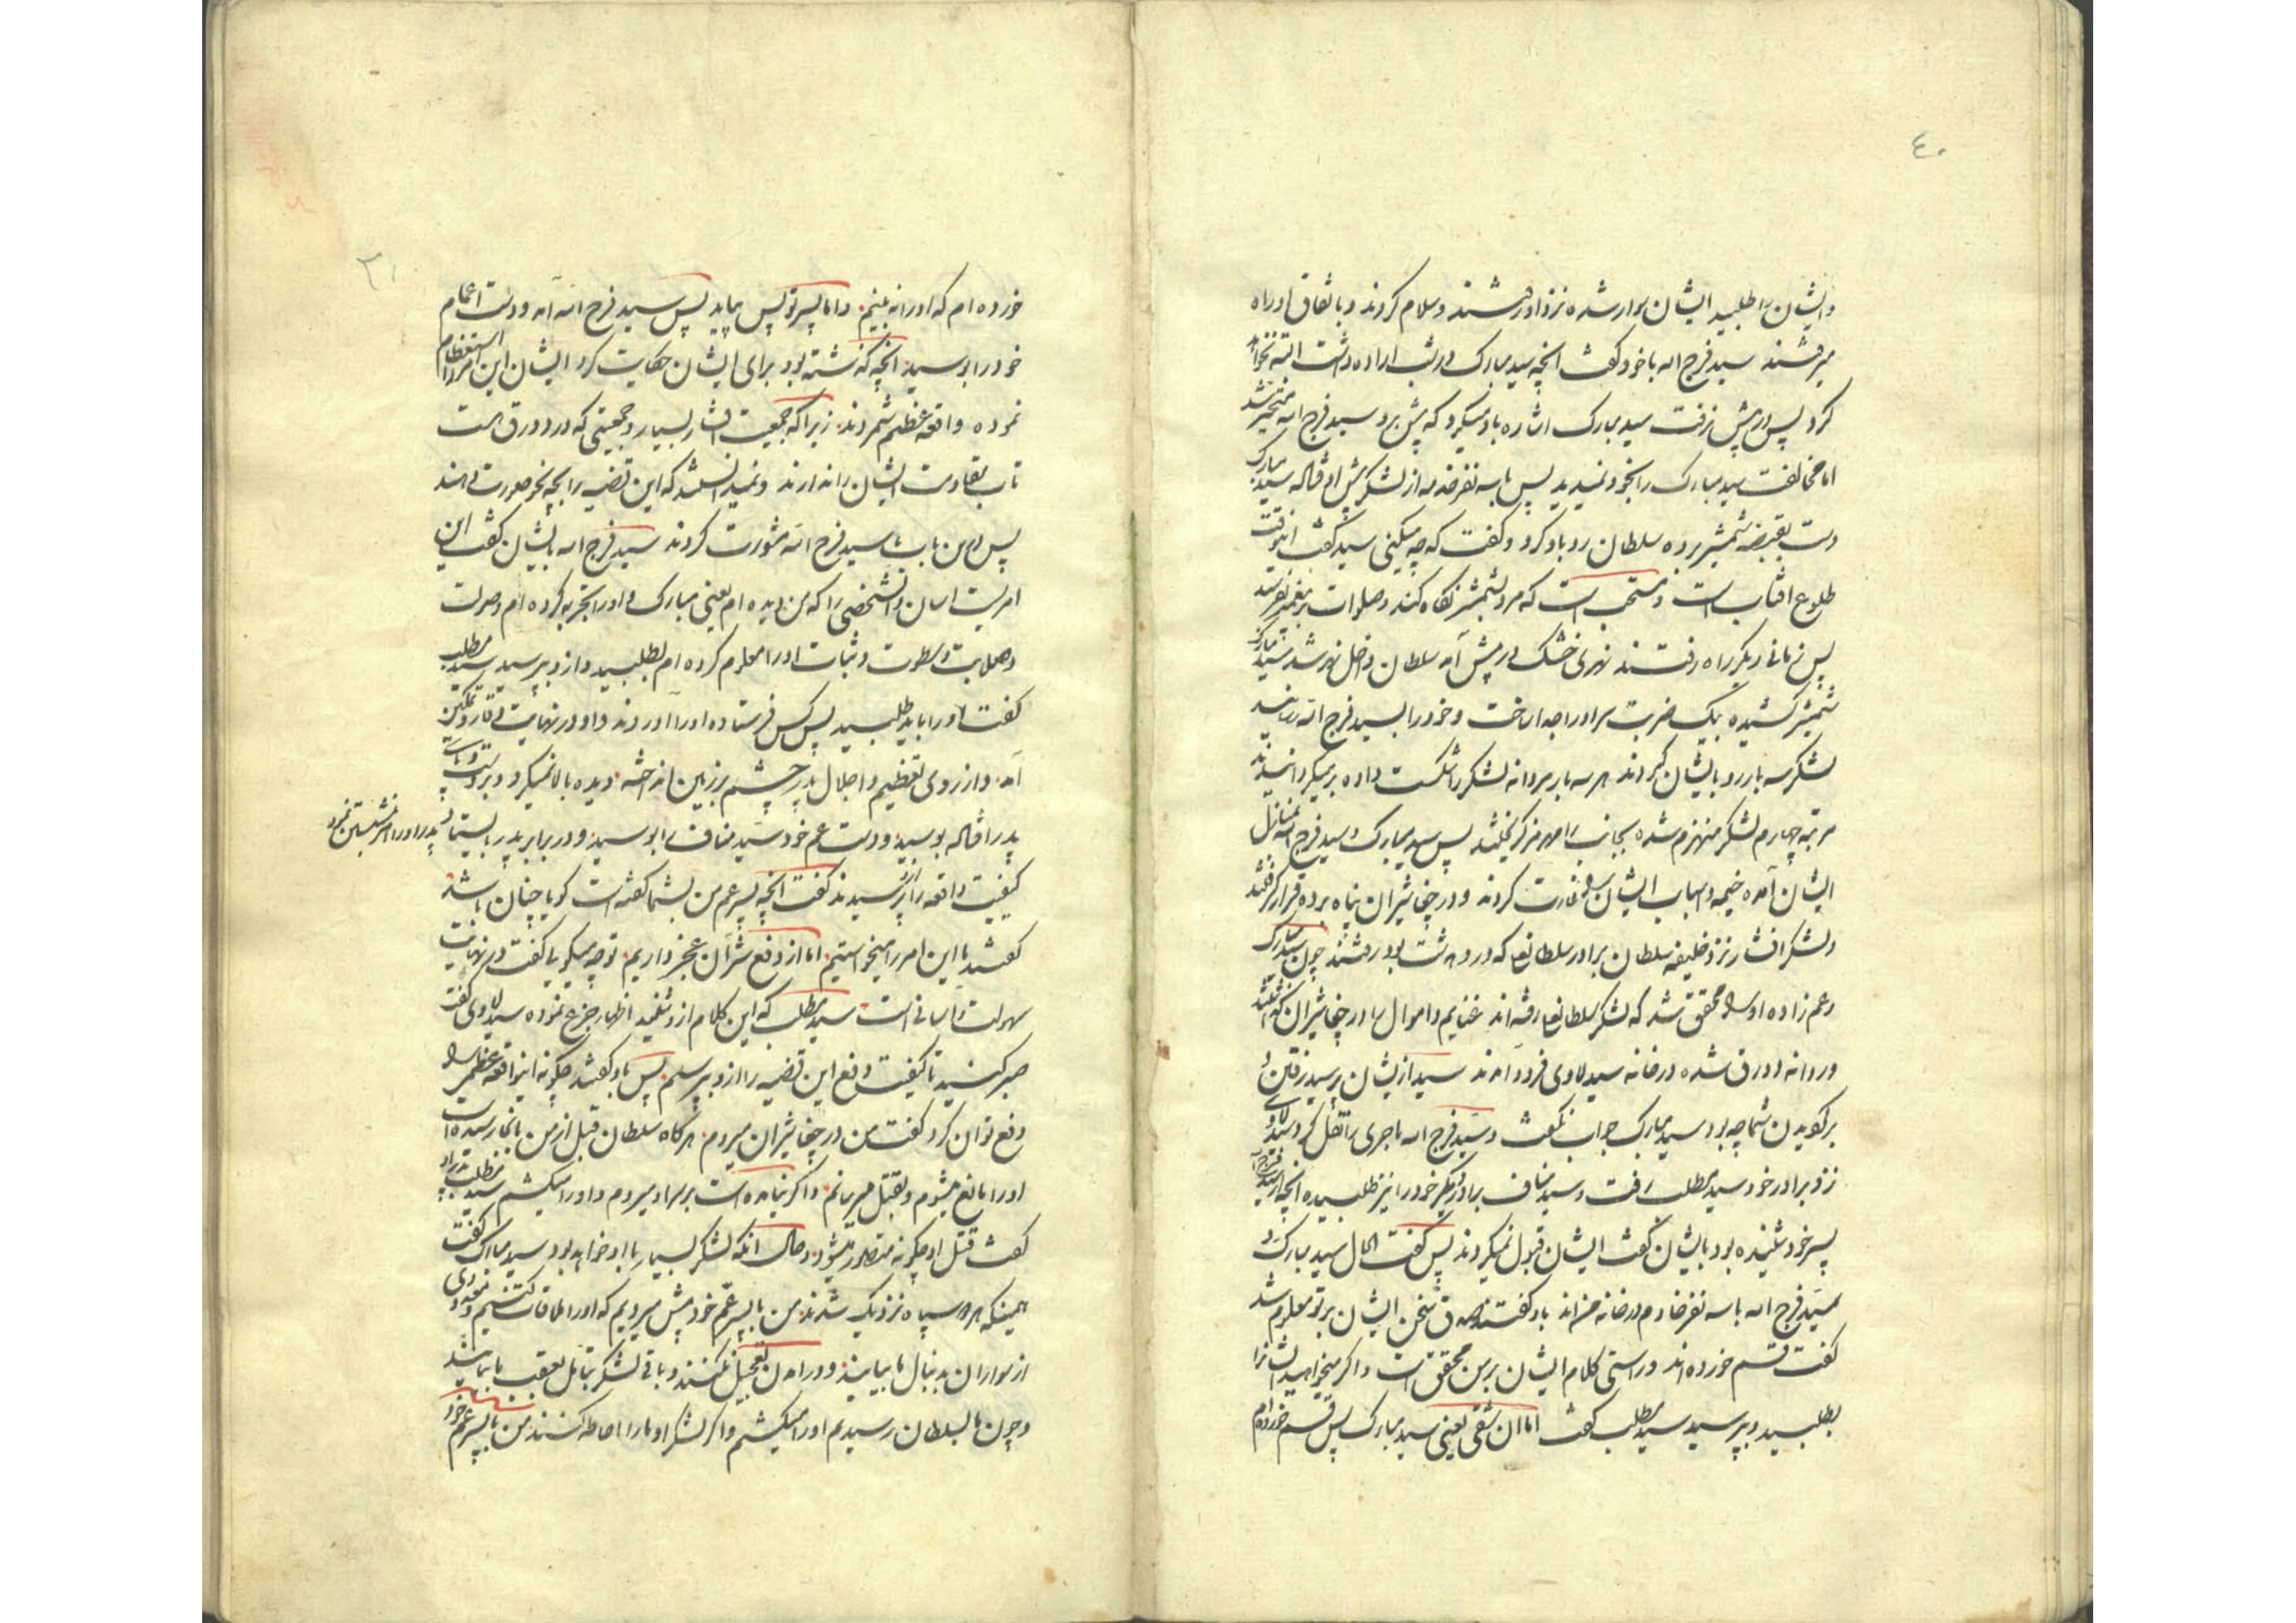 ٤٠
و ایشان را طلبید ایشان سوار شده نزد او رفتند و سلام کردند و باتفاق او راه
میرفتند سید فرج الله با خود گفت آنچه سید مبارک در شب اراده داشت البته نخواهد
کرد پس در پیش رفت سید مبارک اشاره باو میکرد که پیش برو سید فرج الله متحیر شد
اما مخالفت سید مبارک را بخود نمیدید پس با سه نفر خدمه از لشکر پیش افتاد سید مبارک
دست بقبضه شمشیر برده سلطان رو باو کرد و گفت که چه میکنی سید گفت اینوقت
طلوع آفتاب است و مستحب است که مرد بشمشیر نگاه کند و صلوات بر پیغمبر بفرستد
پس زمانی دیگر راه رفتند نهری خشک در پیش آمد سلطان داخل نهر شد سید مبارک
شمشیر کشیده بیک ضربت سر او را جدا ساخت و خود را بسید فرج الله رسانید
لشکر سه بار رو بایشان کردند هر سه بار مردانه لشکر را شکست داده بر میگردانیدند
مرتبه چهارم لشکر منهزم شده بجانب رامهرمز گریختند پس سید مبارک و سید فرج الله بمنازل
ایشان آمده خیمه و اسباب ایشان را غارت کردند و در چغاشیران پناه برده قرار گرفتند
و لشکر افشار نزد خلیفه سلطان برادر سلطانعلی که در دهدشت بود رفتند چون سید مبارک
و عم زاده او را محقق شد که لشکر سلطانعلی رفته اند غنایم و اموال را در چغاشیران گذاشتند
و روانه دورق شده در خانه سید لاوی فرود آمدند سید از ایشان پرسید رفتن و
برگردیدن شما چه بود سید مبارک جواب نگفت و سید فرج الله ماجری را نقل کرد سید لاوی
نزد برادر خود سید مطلب رفت و سید مناف برادر دیگر خود را نیز طلبیده آنچه از سید فرج الله
پسر خود شنیده بود بایشان گفت ایشان قبول نمیکردند پس گفت الحال سید مبارک و
سید فرج الله با سه نفر خادم در خانه من اند باو گفتند صدق سخن ایشان بر تو معلوم شد
گفت قسم خورده اند و راستی کلام ایشان بر من محقق است و اگر میخواهید ایشانرا
بطلبید و بپرسید سید مطلب گفت اما ان شقی یعنی سید مبارک پس قسم خورده ام
٣١
خورده ام که او را نه بینم و اما پسر تو پس بیاید پس سید فرج الله آمد و دست اعمام
خود را بوسید آنچه گذشته بود برای ایشان حکایت کرد ایشان این امر را استعظام
نموده واقعه عظیم شمردند زیرا که جمعیت افشار بسیار و جمعیتی که در دورق است
تاب مقاومت ایشان را ندارند و نمیدانستند که این قضیه را بچه نحو صورت دهند
پس در این باب با سید فرج الله مشورت کردند سید فرج الله بایشان گفت این
امریست اسان و آن شخصی را که من دیده ام یعنی مبارک و او را تجربه کرده ام و صولت
و صلابت و سطوت و ثبات او را معلوم کرده ام بطلبید و از او بپرسید سید مطلب
گفت او را باید طلبید پس کس فرستاده او را آوردند و او در نهایت وقار و تمکین
آمد و از روی تعظیم و اجلال پدر چشم بر زمین انداخته دیده بالا نمیکرد و بر دست و پای
پدر افتاده بوسید و دست عم خود سید مناف را بوسید و در برابر پدر بایستاد پدر او را امر بنشستن نمود
کیفیت واقعه را پرسیدند گفت آنچه پسر عم من بشما گفته است گویا چنان باشد
گفتند ما این امر را میخواستیم اما از دفع شر آن عجز داریم تو چه میگویی گفت در نهایت
سهولت و آسانی است سید مطلب که این کلام از او شنید اظهار جزع نموده سید لاوی گفت
صبر کنید تا کیفیت دفع این قضیه را از او بپرسیم پس باو گفتند چگونه اینواقعه عظمی را
دفع توان کرد گفت من در چغاشیران میروم هرگاه سلطان قبل از من بانجا رسیده است
او را مانع میشوم و بقتل میرسانم و اگر نیامده است بر سر او میروم و او را میکشم سید مطلب پدر او
گفت قتل او چگونه متصور میشود و حال آنکه لشکر بسیار با او خواهد بود سید مبارک گفت
همینکه هر دو سپاه نزدیک شدند من با پسر عم خود پیش میرویم که او را ملاقات کنیم و معدودی
از سواران بدنبال ما بیایند و در آمدن تعجیل نکنند و باقی لشکر بتأمل بعقب ما بیایند
و چون ما بسلطان رسیدیم او را میکشیم و اگر لشکر او ما را احاطه کنند من با پسر عم خود